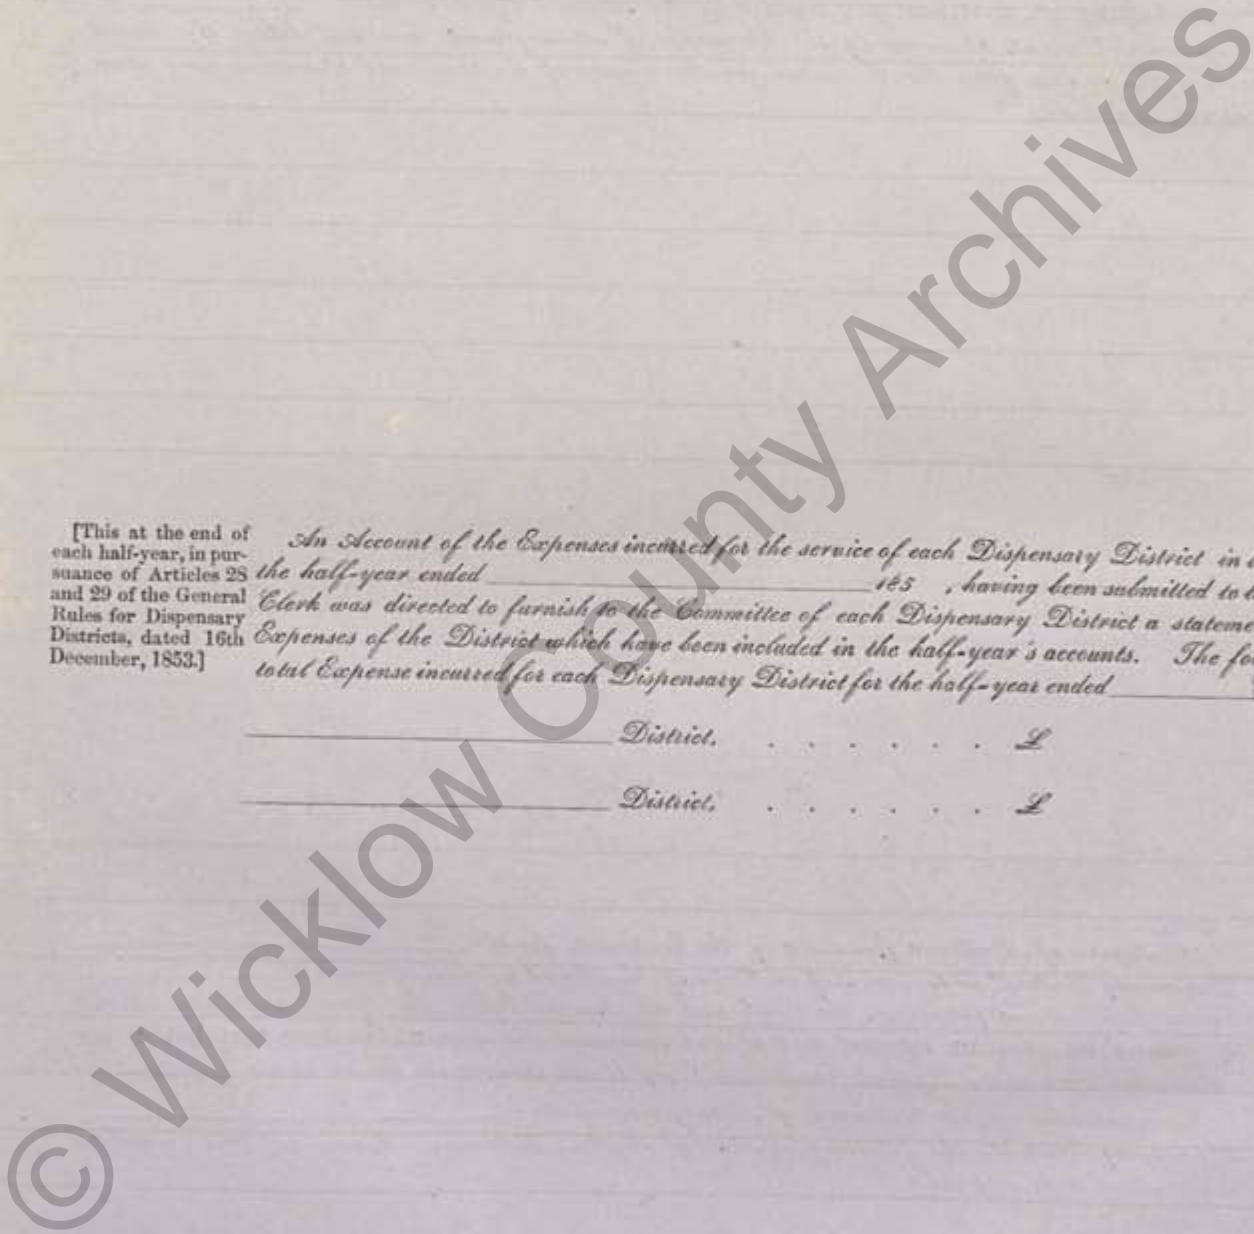 [This at the end of
each half-year, in pur-
suance of Articles 28
and 29 of the General
Rules for Dispensary
Districts, dated 16th
December, 1853.]
An Account of the Expenses incurred for the service of each Dispensary District in
the half-year ended ____ 185 , having been submitted to
Clerk was directed to furnish to the Committee of each Dispensary District a stateme
Expenses of the District which have been included in the half-year's accounts. The fo
total Expense incurred for each Dispensary District for the half-year ended ____
____ District. . . . . . . £
____ District. . . . . . . £
© Wicklow County Archives